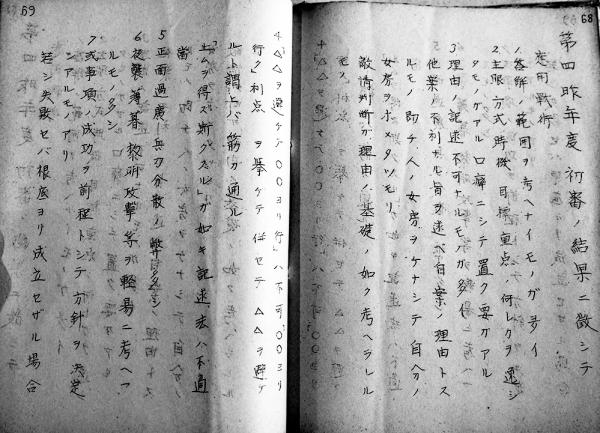 68
第四 昨年度 初審ノ結果ニ徴シテ
応用戦術
1 答解ノ範囲ヲ考ヘナイモノガ多イ
2 主眼、方式、時機、目標、重点ノ何レカヲ逸シ
タモノガアル 口癖ニシテ置ク要ガアル
3 理由ノ記述不可ナルモノガ多イ
他案ノ不利ナル旨ヲ述ベ自案ノ理由トス
ルモノ 即チ人ノ女房ヲケナシテ自分ノ
女房ヲホメタツモリ
敵情判断ガ理由ノ基礎ノ如ク考ヘラレル
モノ
69
4 「△△ヲ避ケテ〇〇ヨリ行ク」ハ不可「〇〇ヨリ
行ク」利点ヲ挙ケテ併セテ△△ヲ避ケ
ルト謂ヘバ筋ガ通ル
止ムヲ得ス断クスルガ如キ記述法ハ不適
当
5 正面過広、兵力分散ノ弊多シ
6 夜襲、薄暮、黎明攻撃等ヲ軽易ニ考ヘア
ルモノ多シ
7 或事項ノ成功ヲ前程トシテ方針ヲ決定
シアルモノアリ
若シ失敗セバ根底ヨリ成立セザル場合